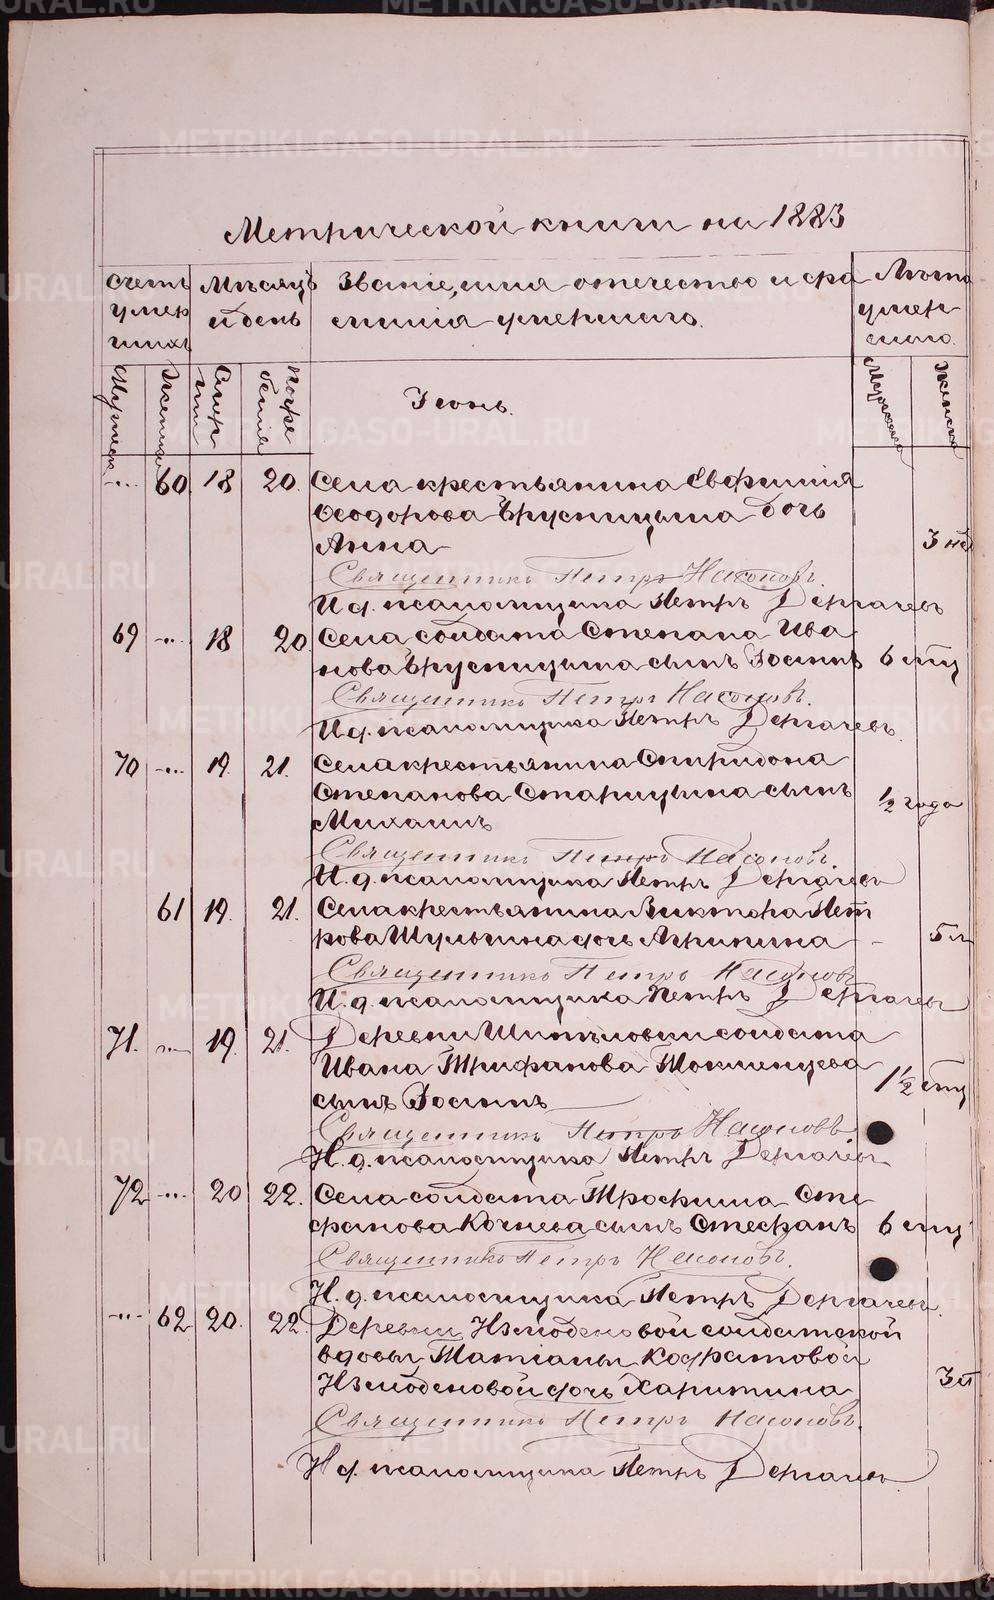 Метрической книги на 1883
Счетъ умершихъ
Мѣсяцъ и день
Званіе, имя отечество и фамилія умершаго.
Лѣта умершаго
Мужеск
Женски
Смерти
Погребенія
Іюнь.
Мужескаго
Женска
... 60 18 20. Села крестьянина Евфимія
Ѳеодорова Брусницына дочь
Анна
3 нед
Священникъ Петръ Насоновъ.
И д. псаломщика Петръ Дергачевъ
69 ... 18 20 Села солдата Степана Ива
нова Брусницына сынъ Іосифъ 6 мцъ
Священникъ Петръ Насоновъ.
И д. псаломщика Петръ Дергачевъ.
70 ... 19. 21. Села крестьянина Спиридона
Степанова Старицына сынъ ½ года
Михаилъ
Священникъ Петръ Насоновъ.
И. д. псаломщика Петръ Дергачевъ
61 19. 21. Села крестьянина Виктора Пет
рова Шульгина дочь Агрипина - 5 л
Священникъ Петръ Насоновъ
И. д. псаломщика Петръ Дергачевъ
71. ... 19. 21. Деревни солдата
Ивана Трифанова
сынъ Іосифъ 1½ мцъ
Священникъ Петръ Насоновъ
И. д. псаломщика Петръ Дергачевъ
72 ... 20 22. Села солдата Трофима Сте
фанова Кочнева сынъ Стефанъ 6 мцъ
Священникъ Петръ Насоновъ.
И. д. псаломщика Петръ Дергачевъ.
... 62 20. 22. Деревни Измоденовой солдатской
вдовы Татіаны
Измоденовой дочь Харитина 3
Священникъ Петръ Насоновъ.
И д. псаломщика Петръ Дергачевъ.
METRIKI.GASO-URAL.RU